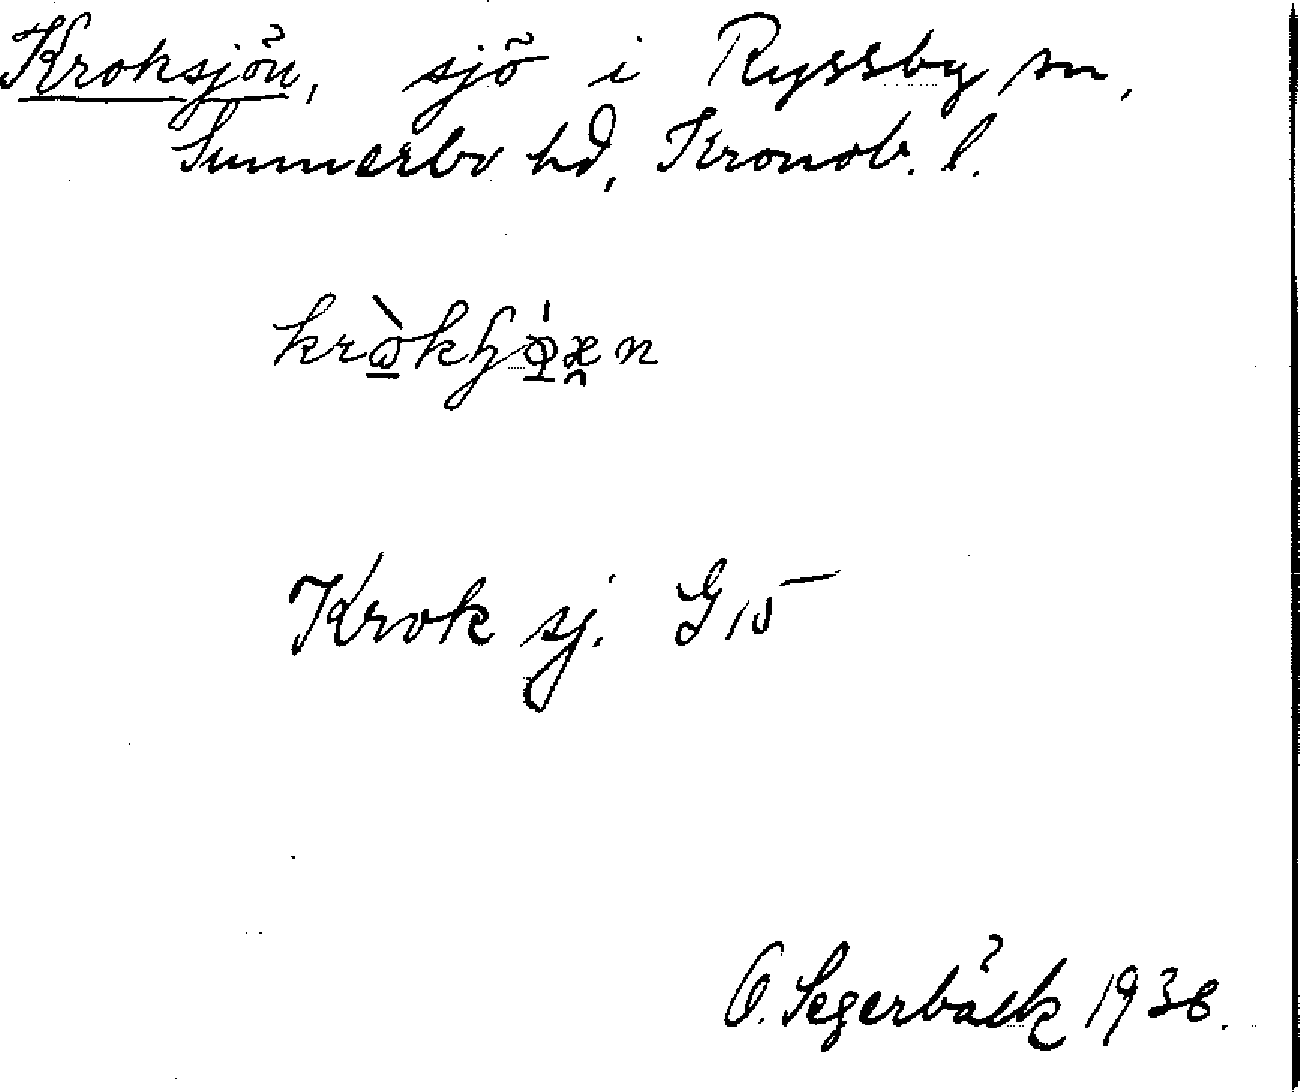 Kroksjön, sjö i Ryssby sn,
Sunnerbo hd, Kronob. l.
Krok sj. G 15
O. Segerbäck 1936.